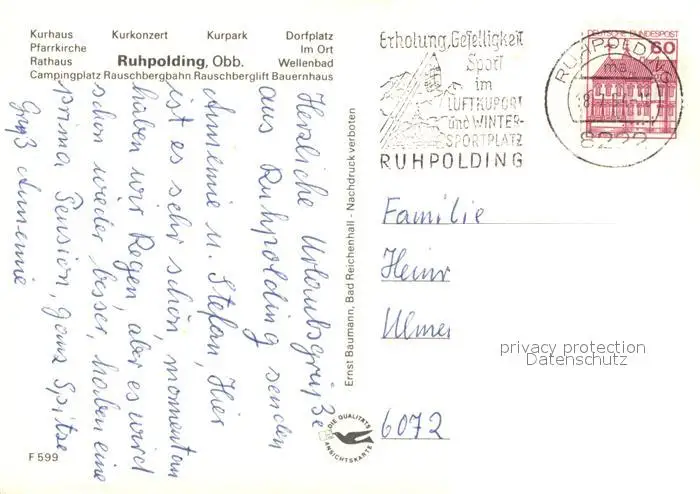 Kurhaus Kurkonzert Kurpark Dorfplatz
Pfarrkirche Im Ort
Rathaus Ruhpolding, Obb. Wellenbad
Campingplatz Rauschbergbahn Rauschberglift Bauernhaus
Herzliche Urlaubsgrüße
aus Ruhpolding senden
Annemie u. Stefan, Hier
ist es sehr schön, momentan
haben wir Regen, aber es wird
schon wieder besser, haben eine
prima Pension, ganz Spitze
Gruß Annemie
F 599
Ernst Baumann, Bad Reichenhall - Nachdruck verboten
DIE QUALITÄTS
ANSICHTSKARTE
Erholung, Geselligkeit
Sport
im
LUFTKURORT
und WINTER-
SPORTPLATZ
RUHPOLDING
RUHPOLDING
ma
8222
DEUTSCHE BUNDESPOST
60
Familie
Heinr
Ulmer
privacy protection
Datenschutz
6072